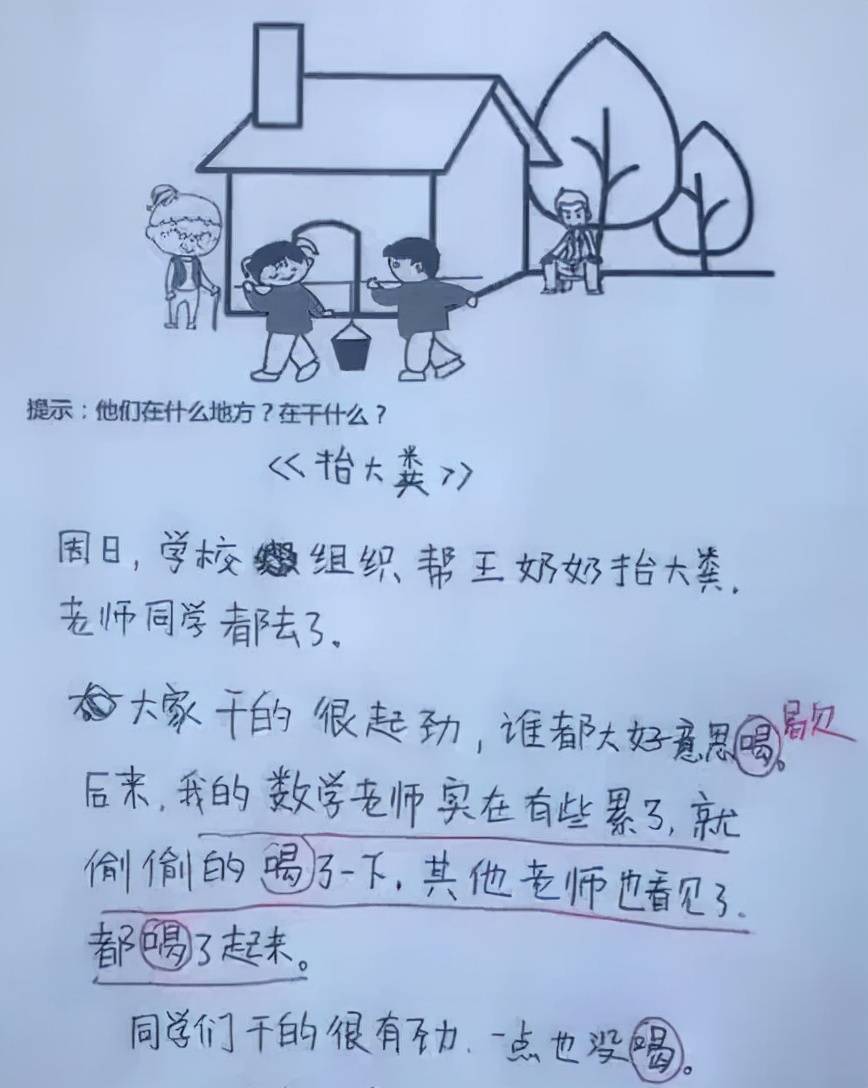 提示：他们在什么地方？在干什么？
<<抬大粪>>
周日，学校组织帮王奶奶抬大粪.
老师同学都去了.
大家干的很起劲，谁都大好意思喝。歇
后来，我的数学老师实在有些累了，就
偷偷的喝了一下，其他老师也看见了.
都喝了起来。
同学们干的很有劲、一点也没喝。